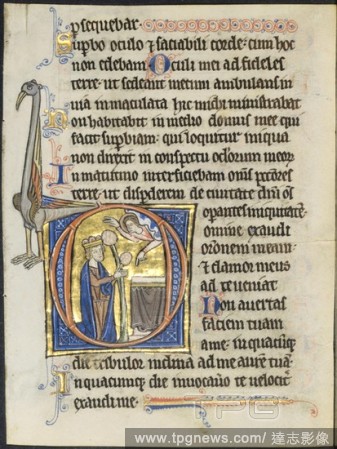 psequebar
Supbo oculo ⁊ saciabili corde: cum hoc
non edebam Oculi mei ad fideles
terre: ut sedeant mecum ambulans in
uia inmaculata hic michi ministrabat
Non habitabit in medio domus mee qui
facit supbiam: qui loquitur iniqua
non direxit in conspectu oclorum meorum
In matutino interficiebam omnes peccatores
terre: ut disperderem de ciuitate domini omnes
operantes iniquitatem
Domine exaudi
orationem meam:
⁊ clamor meus
ad te ueniat
Non auertas
faciem tuam
a me: in quacumque
die tribulor inclina ad me aurem tuam
In quacumque die inuocauero te uelociter
exaudi me.
TPG
www.tpgnews.com/ 達志影像